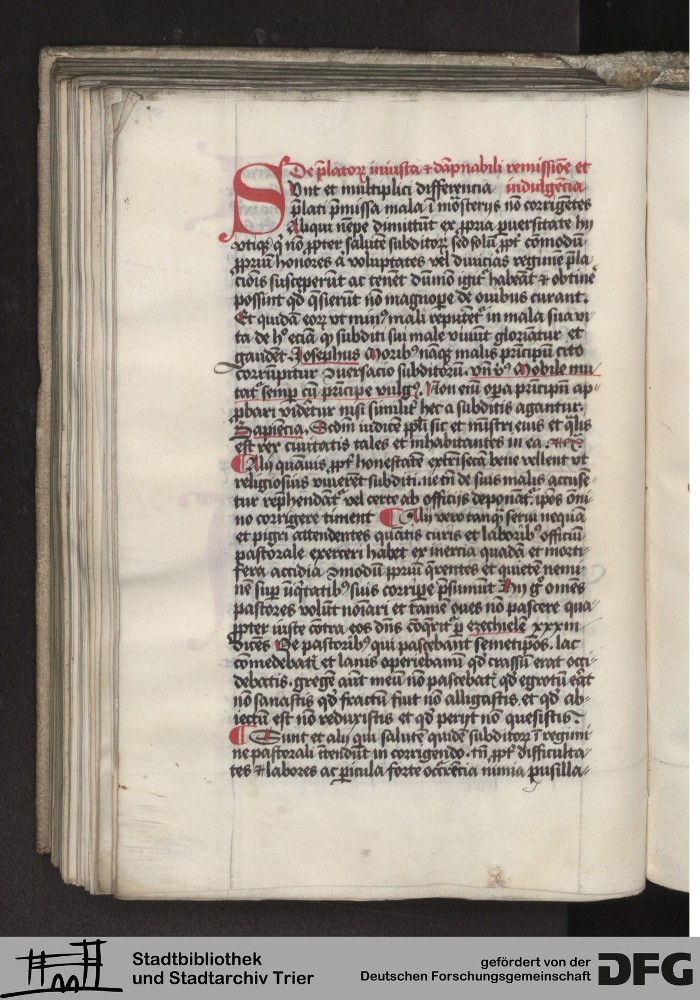 De p̄lator̄ꝝ iniusta ⁊ dāpnabili remissiōe et
Sunt et multiplici differencia indulgēcia
p̄lati p̄missa mala ī mōsterijs nō corrigētes
Aliqui nēpe dimittūt ex ꝓpria ꝑuersitate hij
vtiqꝫ qͥ nō ꝓpter salutē subditorꝝ sed solū ꝓpt̓ cōmodū
ꝓpriū honores a voluptates vel diuicias regimē p̄la
cionis susceperūt ac tenēt dūmō igit᷑ habeāt ⁊ obtinē
possint qd̓ q̄sierūt nō magnoꝑe de ouibus curant.
Et quidā eorꝝ vt minꝰ mali reputēt᷑ in mala sua vi
ta de hͦ eciā ꝙ subditi sui male viuūt gloriātur et
gaudēt Josephus Moribꝰ nāqꝫ malis prīcipū cito
corrūpitur ɔuersacio subditorū. vn̄ vͥs Mobile mu
tat᷑ semꝑ cū prīcipe vulgꝰ. Non enī oꝑa prīcipū ap-
p̄bari vidētur nisi similit̓ hec a subditis agantur.
Sapiēcia. Scd̄m iudicē ppl̓i sic et mīstri eius et q̄lis
est rex ciuitatis tales et inhabitantes in ea
Alij quāuis ꝓpt̓ honestatē extrīsecā bene vellent vt
religiosius viuerēt subditi. ne tn̄ de suis malis accusē
tur rep̄hendāt᷑ vel certe ab officijs deponāt᷑. ip̄os om̄i
no corrigere timent Alij vero tanqͣ serui nequā
et pigri attendentes quātis curis et laboribꝰ officiū
pastorale exerceri habet ex inercia quadā et morti-
fera accidia ɔmodū ꝓpriū q̄rentes et quietē nemi
nē suꝑ iīq̇tatibꝰ suis corriꝑe p̄sumūt Hij gͦ om̄es
pastores volūt noīari et tamē oues nō pascere qua
ꝓpter iuste cōtra eos dn̄s cōq̄rit᷑ ꝑ ezechielē xxxiiij
dicēs Ve pastoribꝰ qui pascebant semetip̄os. lac
comedebatis et lanis operiebamī qd̓ crassū erat occi-
debatis. gregē aūt meū nō pascebatis qd̓ egrotū eāt
nō sanastis qd̓ fractū fuit nō alligastis. et qd̓ ab-
iectū est nō reduxistis et qd̓ perijt nō quesistis
Sunt et alij qui salutē quidē subditorꝝ ī regimi
ne pastorali ītendūt in corrigendo. tn̄ ꝓpt̓ difficulta-
tes ⁊ labores ac ꝑicula forte occ̄rētia nimia pusilla-
Stadtbibliothek
und Stadtarchiv Trier
gefördert von der
Deutschen Forschungsgemeinschaft
DFG